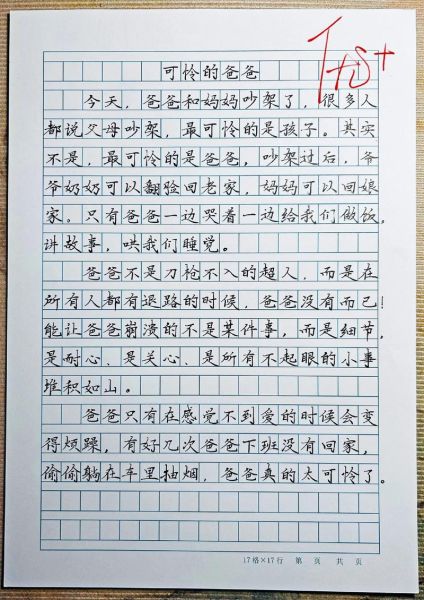 可怜的爸爸
今天，爸爸和妈妈吵架了，很多人
都说父母吵架，最可怜的是孩子。其实
不是，最可怜的是爸爸，吵架过后，爷
爷奶奶可以翻脸回老家，妈妈可以回娘
家。只有爸爸一边哭着一边给我们做饭。
讲故事，哄我们睡觉。
爸爸不是刀枪不入的超人，而是在
所有人都有退路的时候，爸爸没有而已！
能让爸爸崩溃的不是某件事，而是细节，
是耐心、是关心、是所有不起眼的小事
堆积如山。
爸爸只有在感觉不到爱的时候会变
得烦躁，有好几次爸爸下班没有回家，
偷偷躺在车里抽烟，爸爸真的太可怜了。
17格×17行 第 页 共 页